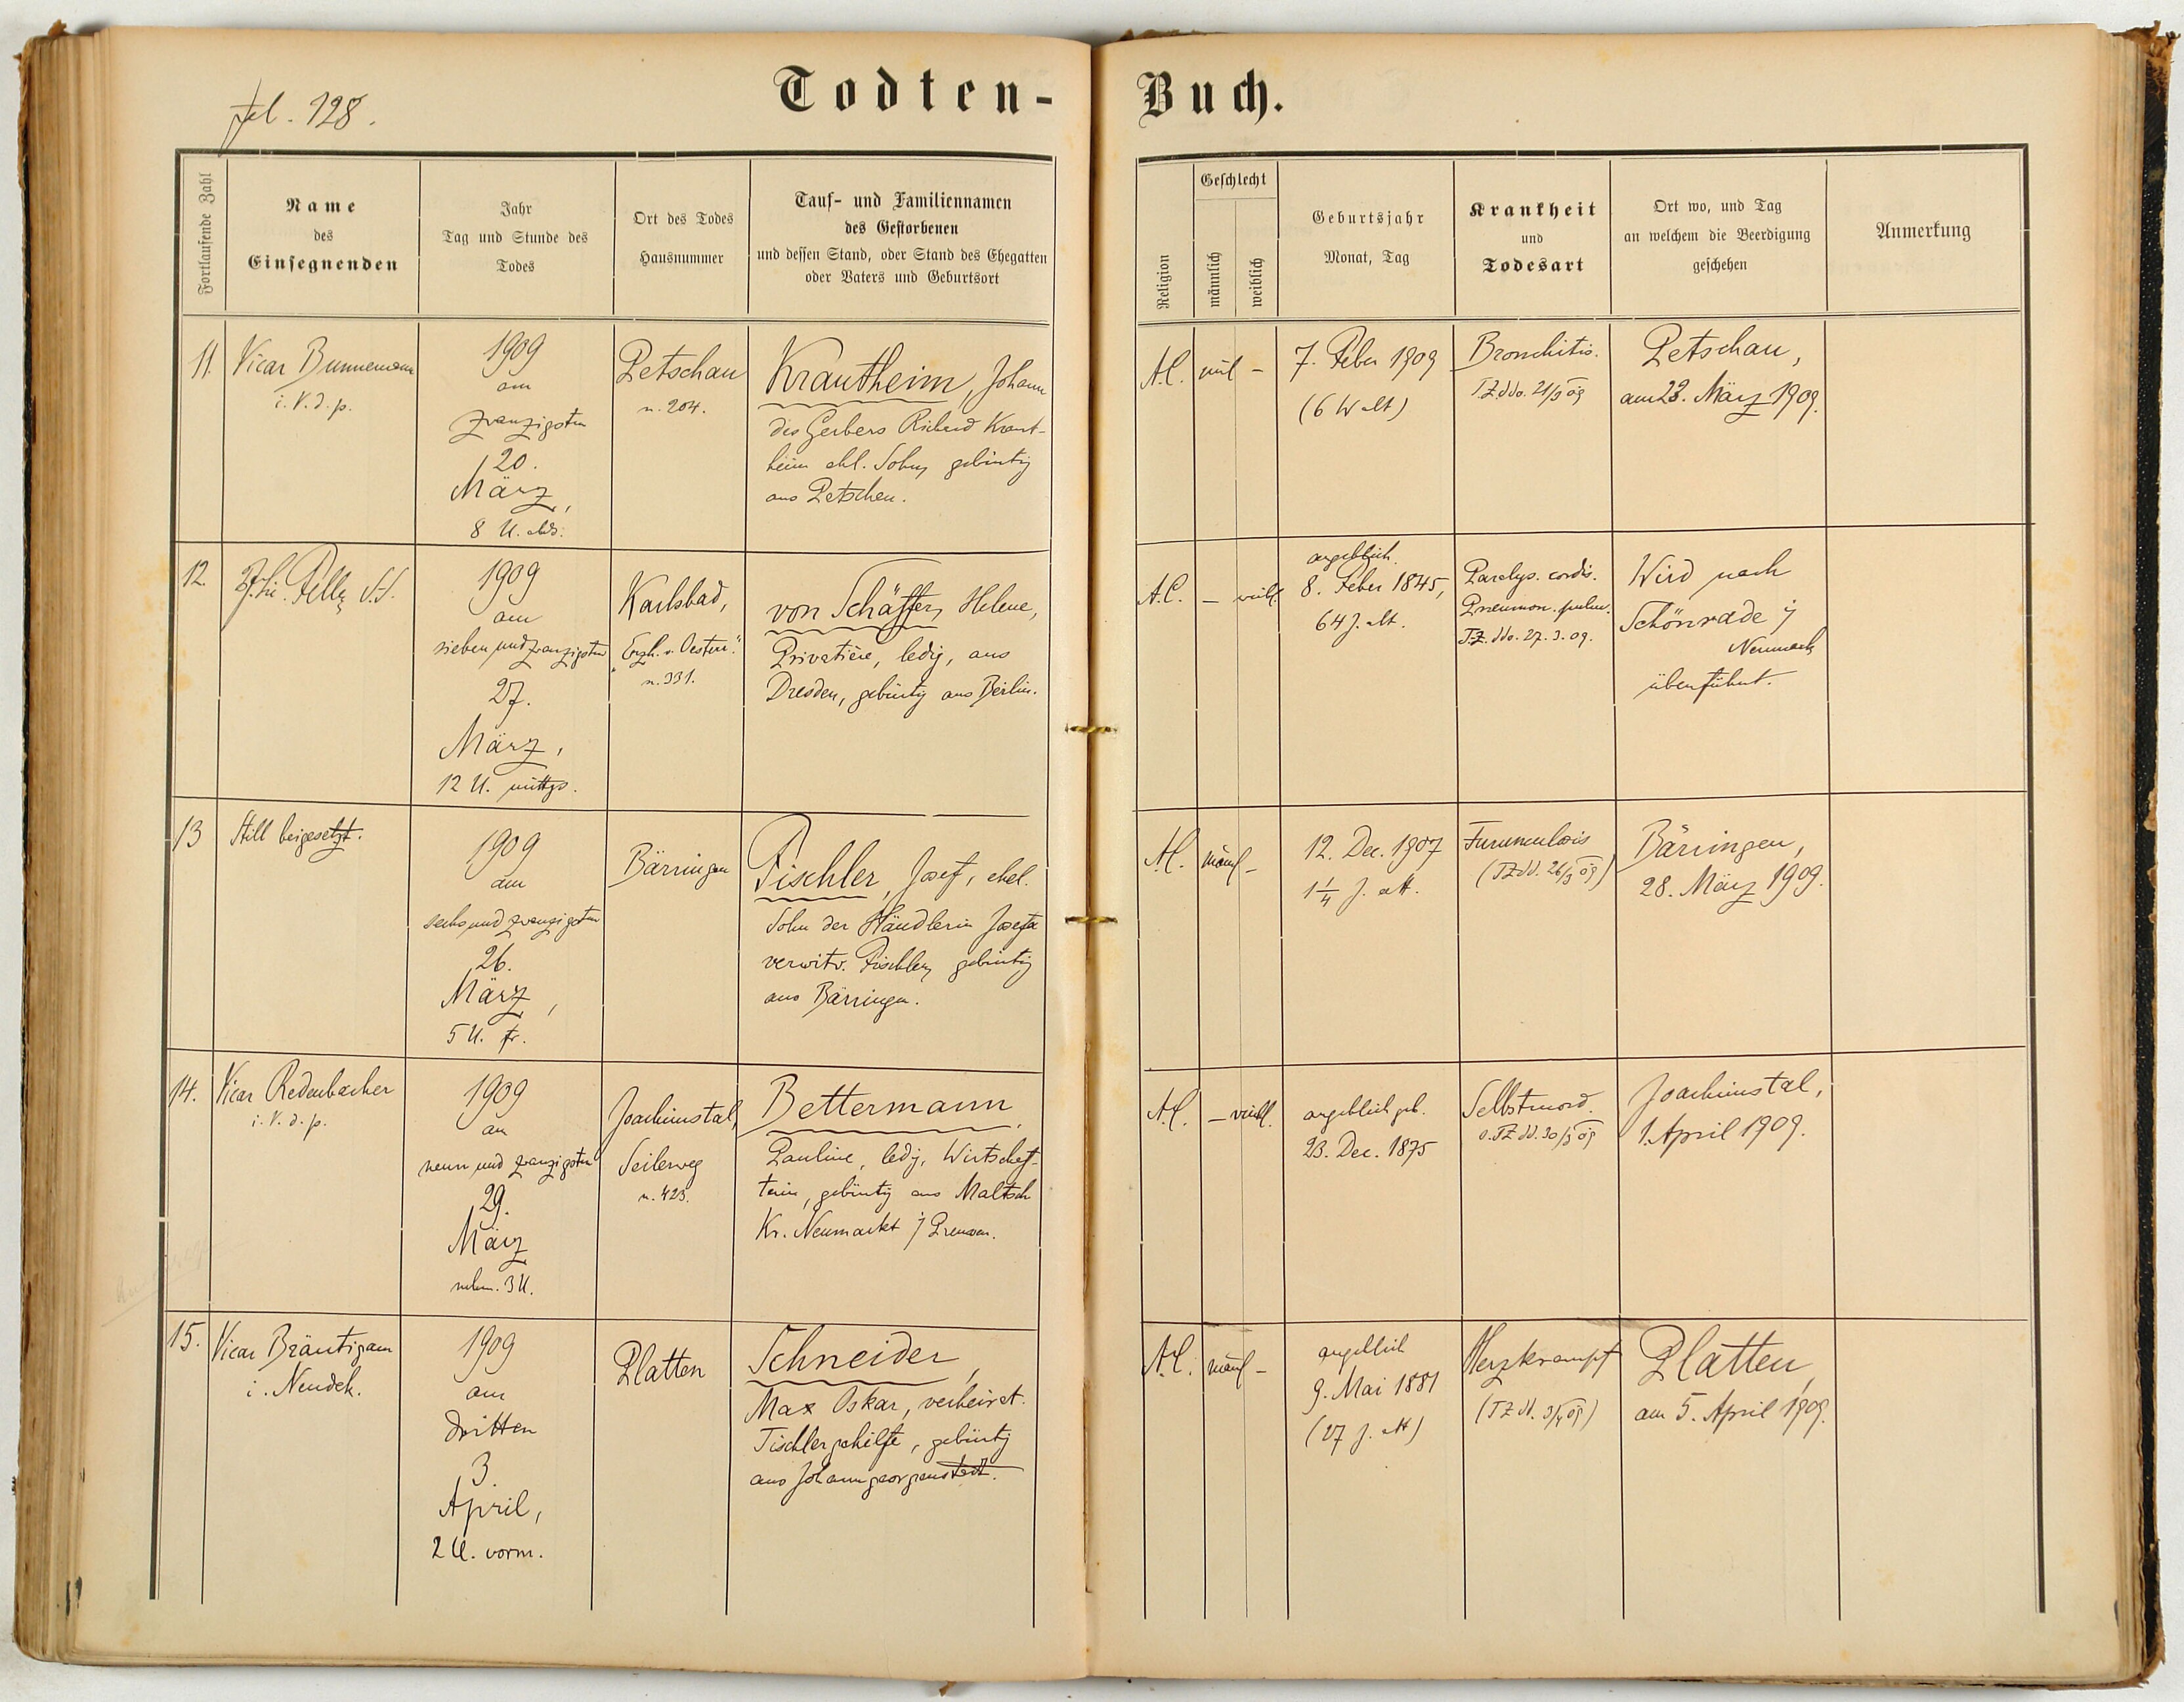 fol. 128.
Todten-Buch.
Fortlaufende Zahl
Name
des
Einsegnenden
Jahr
Tag und Stunde des
Todes
Ort des Todes
Hausnummer
Tauf- und Familiennamen
des Gestorbenen
und dessen Stand, oder Stand des Ehegatten
oder Vaters und Geburtsort
Religion
Geschlecht
männlich
weiblich
Geburtsjahr
Monat, Tag
Krankheit
und
Todesart
Ort wo, und Tag
an welchem die Beerdigung
geschehen
Anmerkung
11.
Vicar Bunnemann
i. V. d. p.
1909
am
zwanzigsten
20.
März,
8 U. abds.
Petschau
n. 204.
Krautheim, Johann
des Gerbers Richard Kraut-
heim ehl. Sohn, gebürtig
aus Petschau.
A.C.
–
7. Feber 1909
(6 W alt)
Bronchitis.
T.Z. ddo. 21/3 09
Petschau,
am 23. März 1909.
12.
1909
am
siebenundzwanzigsten
27.
März,
12 U. mittgs.
Karlsbad,
"Erzh. v. Oesterr."
n. 331.
von Schäffer, Helene,
Privatière, ledig, aus
Dresden, gebürtig aus Berlin.
A.C.
–
weibl.
angeblich
8. Feber 1845,
64 J. alt.
Paralys. cordis.
Pneumon. pulm.
T.Z. ddo. 27. 3. 09.
Wird nach
Schönrade i/
Neumark
überführt.
13
Still beigesetzt.
1909
am
sechsundzwanzigsten
26.
März,
5 U. fr.
Bärringen
Fischler, Josef, ehel.
Sohn der Händlerin Josefa
verwitw. Fischler, gebürtig
aus Bärringen.
A.C.
männl
–
12. Dec. 1907
1 1/4 J. alt.
(TZ dd. 26/3 09)
Bärringen,
28. März 1909.
14.
Vicar Redenbacher
i. V. d. p.
1909
am
neunundzwanzigsten
29.
März
nchm. 3 U.
Joachimstal,
Seilerweg
n. 423.
Bettermann,
Pauline, ledig, Wirtschaf-
terin, gebürtig aus Maltsch
Kr. Neumarkt i/ Preussen.
A.C.
–
weibl.
angeblich geb.
23. Dec. 1875
Selbstmord.
s. TZ dd. 30/3 09
Joachimstal,
1. April 1909.
15.
Vicar Bräutigam
i. Neudek.
1909
am
dritten
3.
April,
2 U. vorm.
Platten
Schneider,
Max Oskar, verheirat.
Tischlergehilfe, gebürtig
aus Johanngeorgenstadt.
A.C.
männl
–
angeblich
9. Mai 1881
(27 J. alt)
Herzkrampf
(TZ dd. 3/4 09)
Platten,
am 5. April 1909.